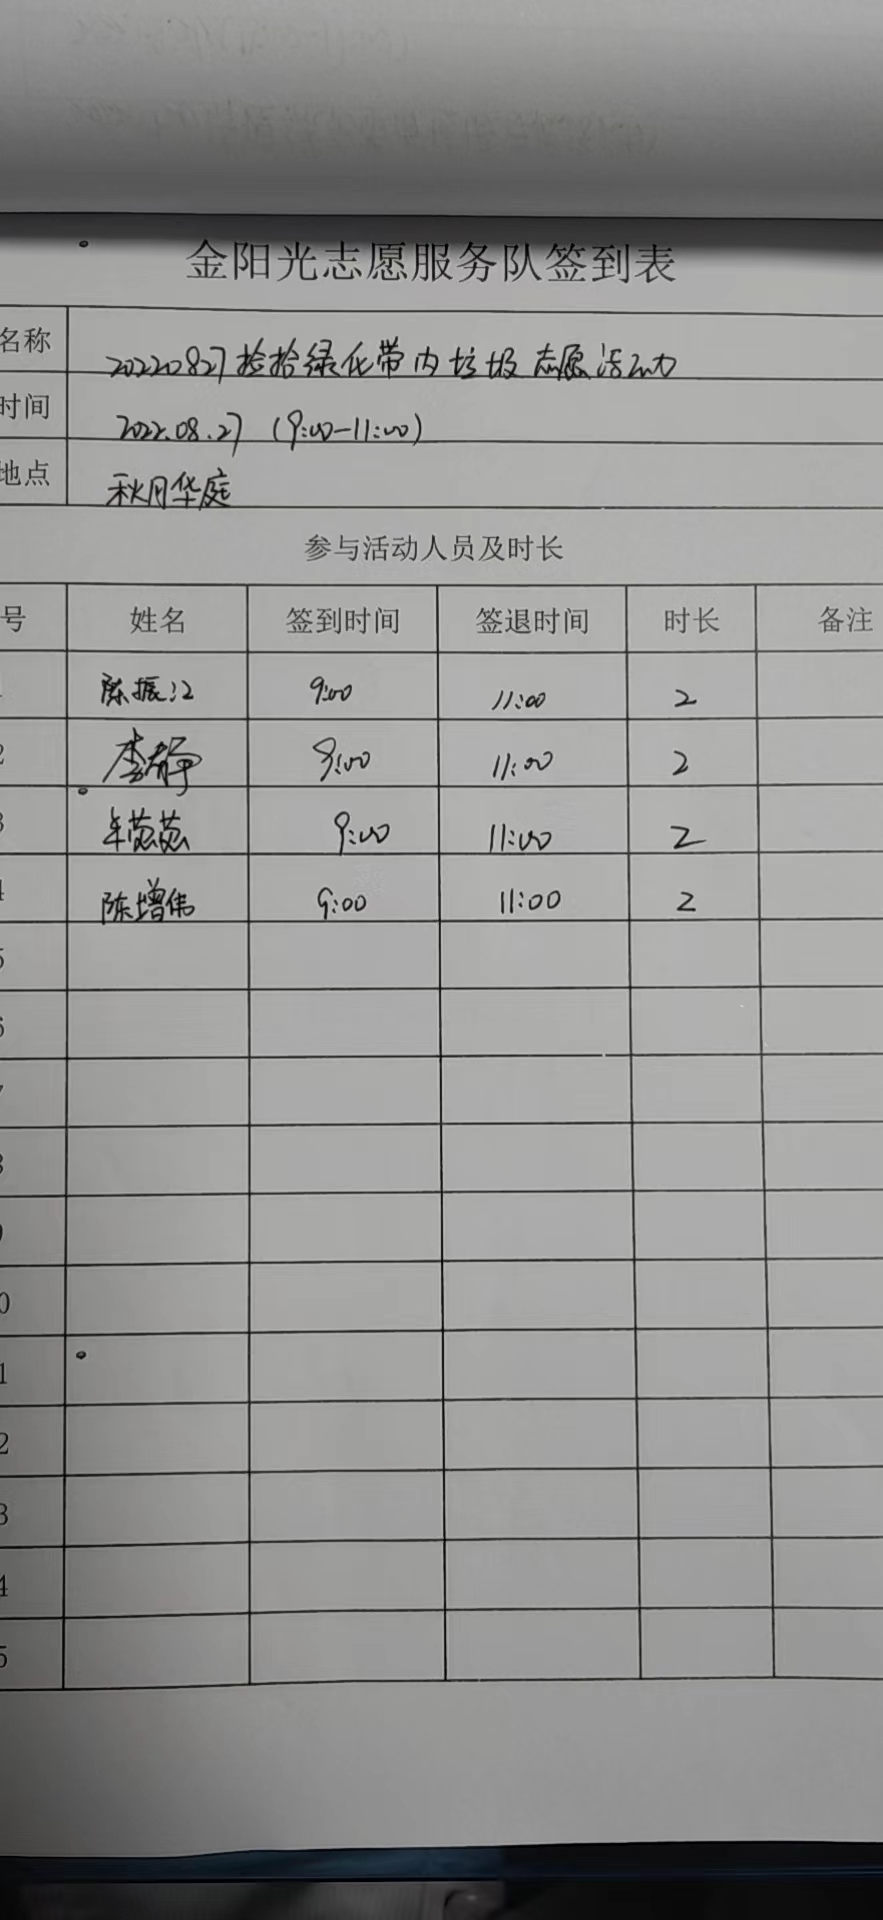 金阳光志愿服务队签到表
名称 20220827捡拾绿化带内垃圾志愿活动
时间 2022.08.27 (9:00-11:00)
地点 秋月华庭
参与活动人员及时长
号 姓名 签到时间 签退时间 时长 备注
陈振江 9:00 11:00 2
2 李静 9:00 11:00 2
3 9:00 11:00 2
4 陈增伟 9:00 11:00 2
5
6
7
8
9
0
1
2
3
4
5